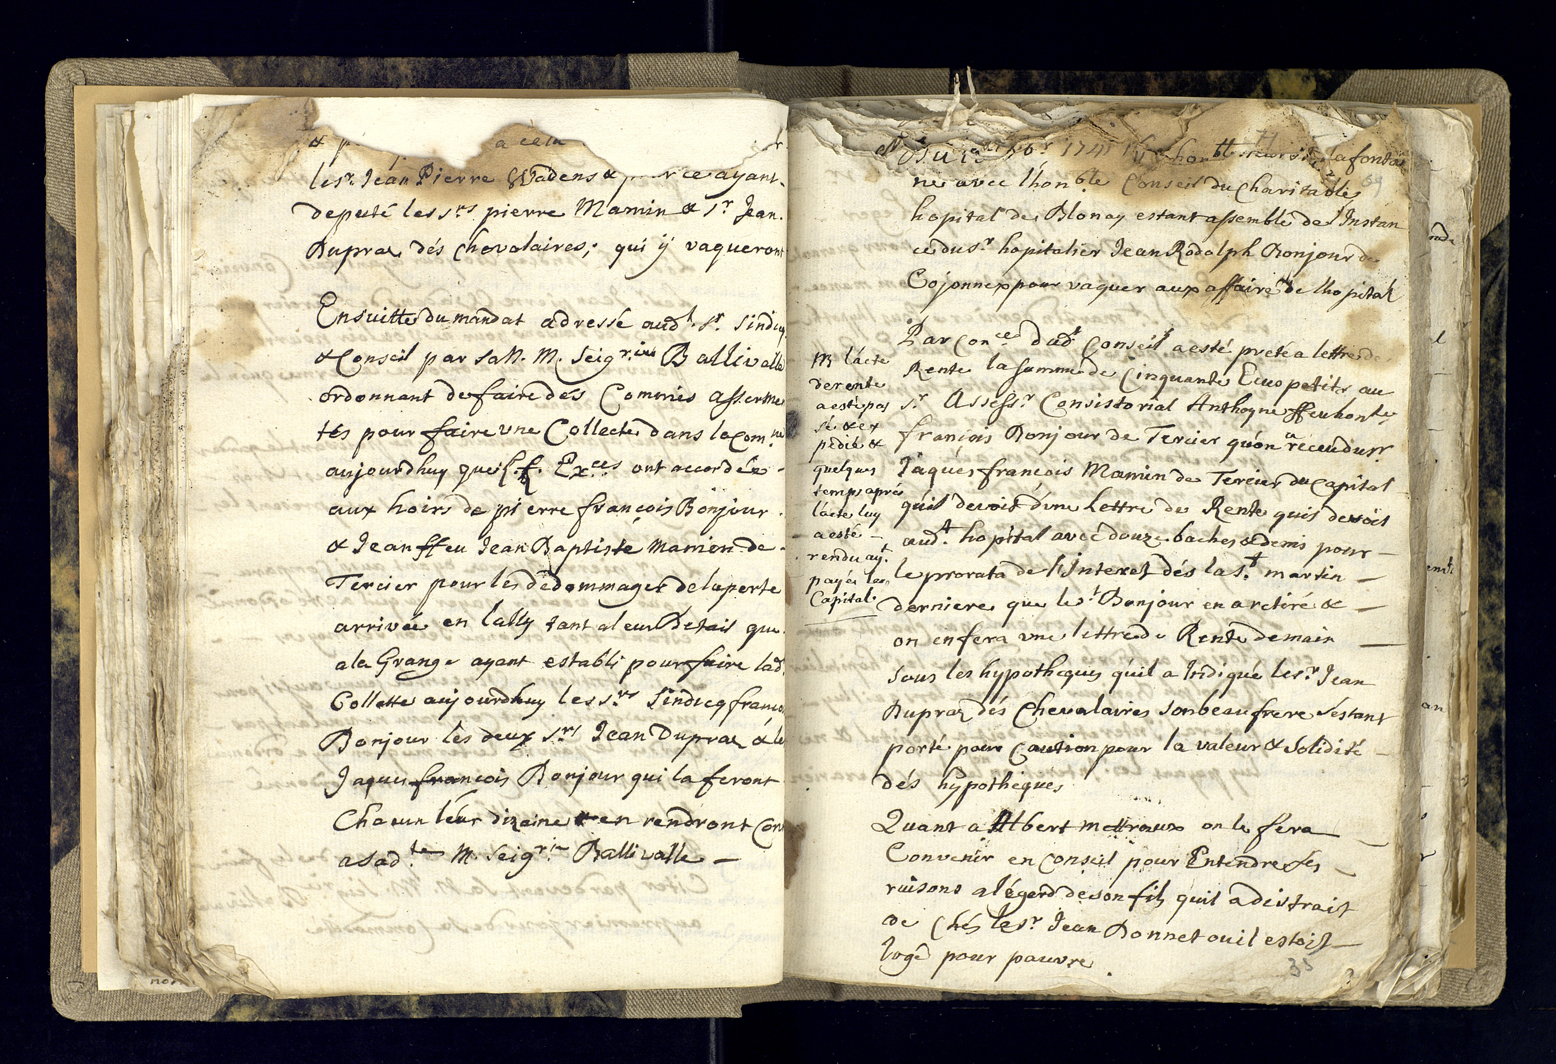 & p
a cela
le sr. Jean Pierre Wadens & ce ayant
deputé les srs pierre Mamin & sr Jean
Dupraz dés Chevalaires; qui ÿ vaqueront
Ensuitte du mandat adressé aud.t sr. Sindicq
& Conseil par sa N. M. Seigrie Ballivalle
ordonnant de faire des Commis asserme
tés pour faire vne Collecte dans la Comne
aujourdhuy que L.L. Exces ont accordée
aux hoirs de pierre françois Bonjour
& Jean ffeu Jean Baptiste Mamin de
Tercier pour les dédommager de la perte
arrivée en lally tant a leur Betail que
a la Grange ayant establi pour faire lad.
Collette aujourdhuy les srs Sindicq francois
Bonjour les deux srs Jean Dupraz & le
Jaques francois Bonjour qui la feront
Chacun léur dizeine & en rendront Con
a sad.te M. Seigrie Ballivalle —
1741 la fontai
39
ne avec lhonble Conseil du Charitable
hopital de Blonay estant assemblé de l'Instan
ce du sr hopitalier Jean Rodolph Bonjour de
Cojonnex pour vaquer aux affaires de lhopital
Par Conce dud.t Conseil a esté preté a lettre de
Rente la somme de Cinquante Ecus petits au
sr Assessr Consistorial Anthoyne ffeu honte
françois Bonjour de Tercier qu'on a receu du sr
Jaques francois Mamin de Tercier du Capital
quil devoit d'une Lettre de Rente quis devois
aud.t hopital avec douze baches & demis pour —
le prorata de l'Interet dés la St martin —
derniere que le.t Bonjour en a retiré & —
on en fera vne lettre de Rente demain —
sous les hypotheques quil a Indiqué le sr Jean
Dupraz dés Chevalaires son beau frere s'estant
porté pour Caution pour la valeur & solidité —
dés hypotheques
NB l'acte
de rente
a esté pas
sé & ex
pedié &
quelques
temps aprés
lacte luy
a esté
rendu ayt
payée le
Capital.
Quant a Albert mettraux on le fera —
Convenir en Conseil pour Entendre ses —
raisons a légerd de son fils quil a distrait
de Chés le sr Jean Bonnet ou il estoit —
logé pour pauvre.
35